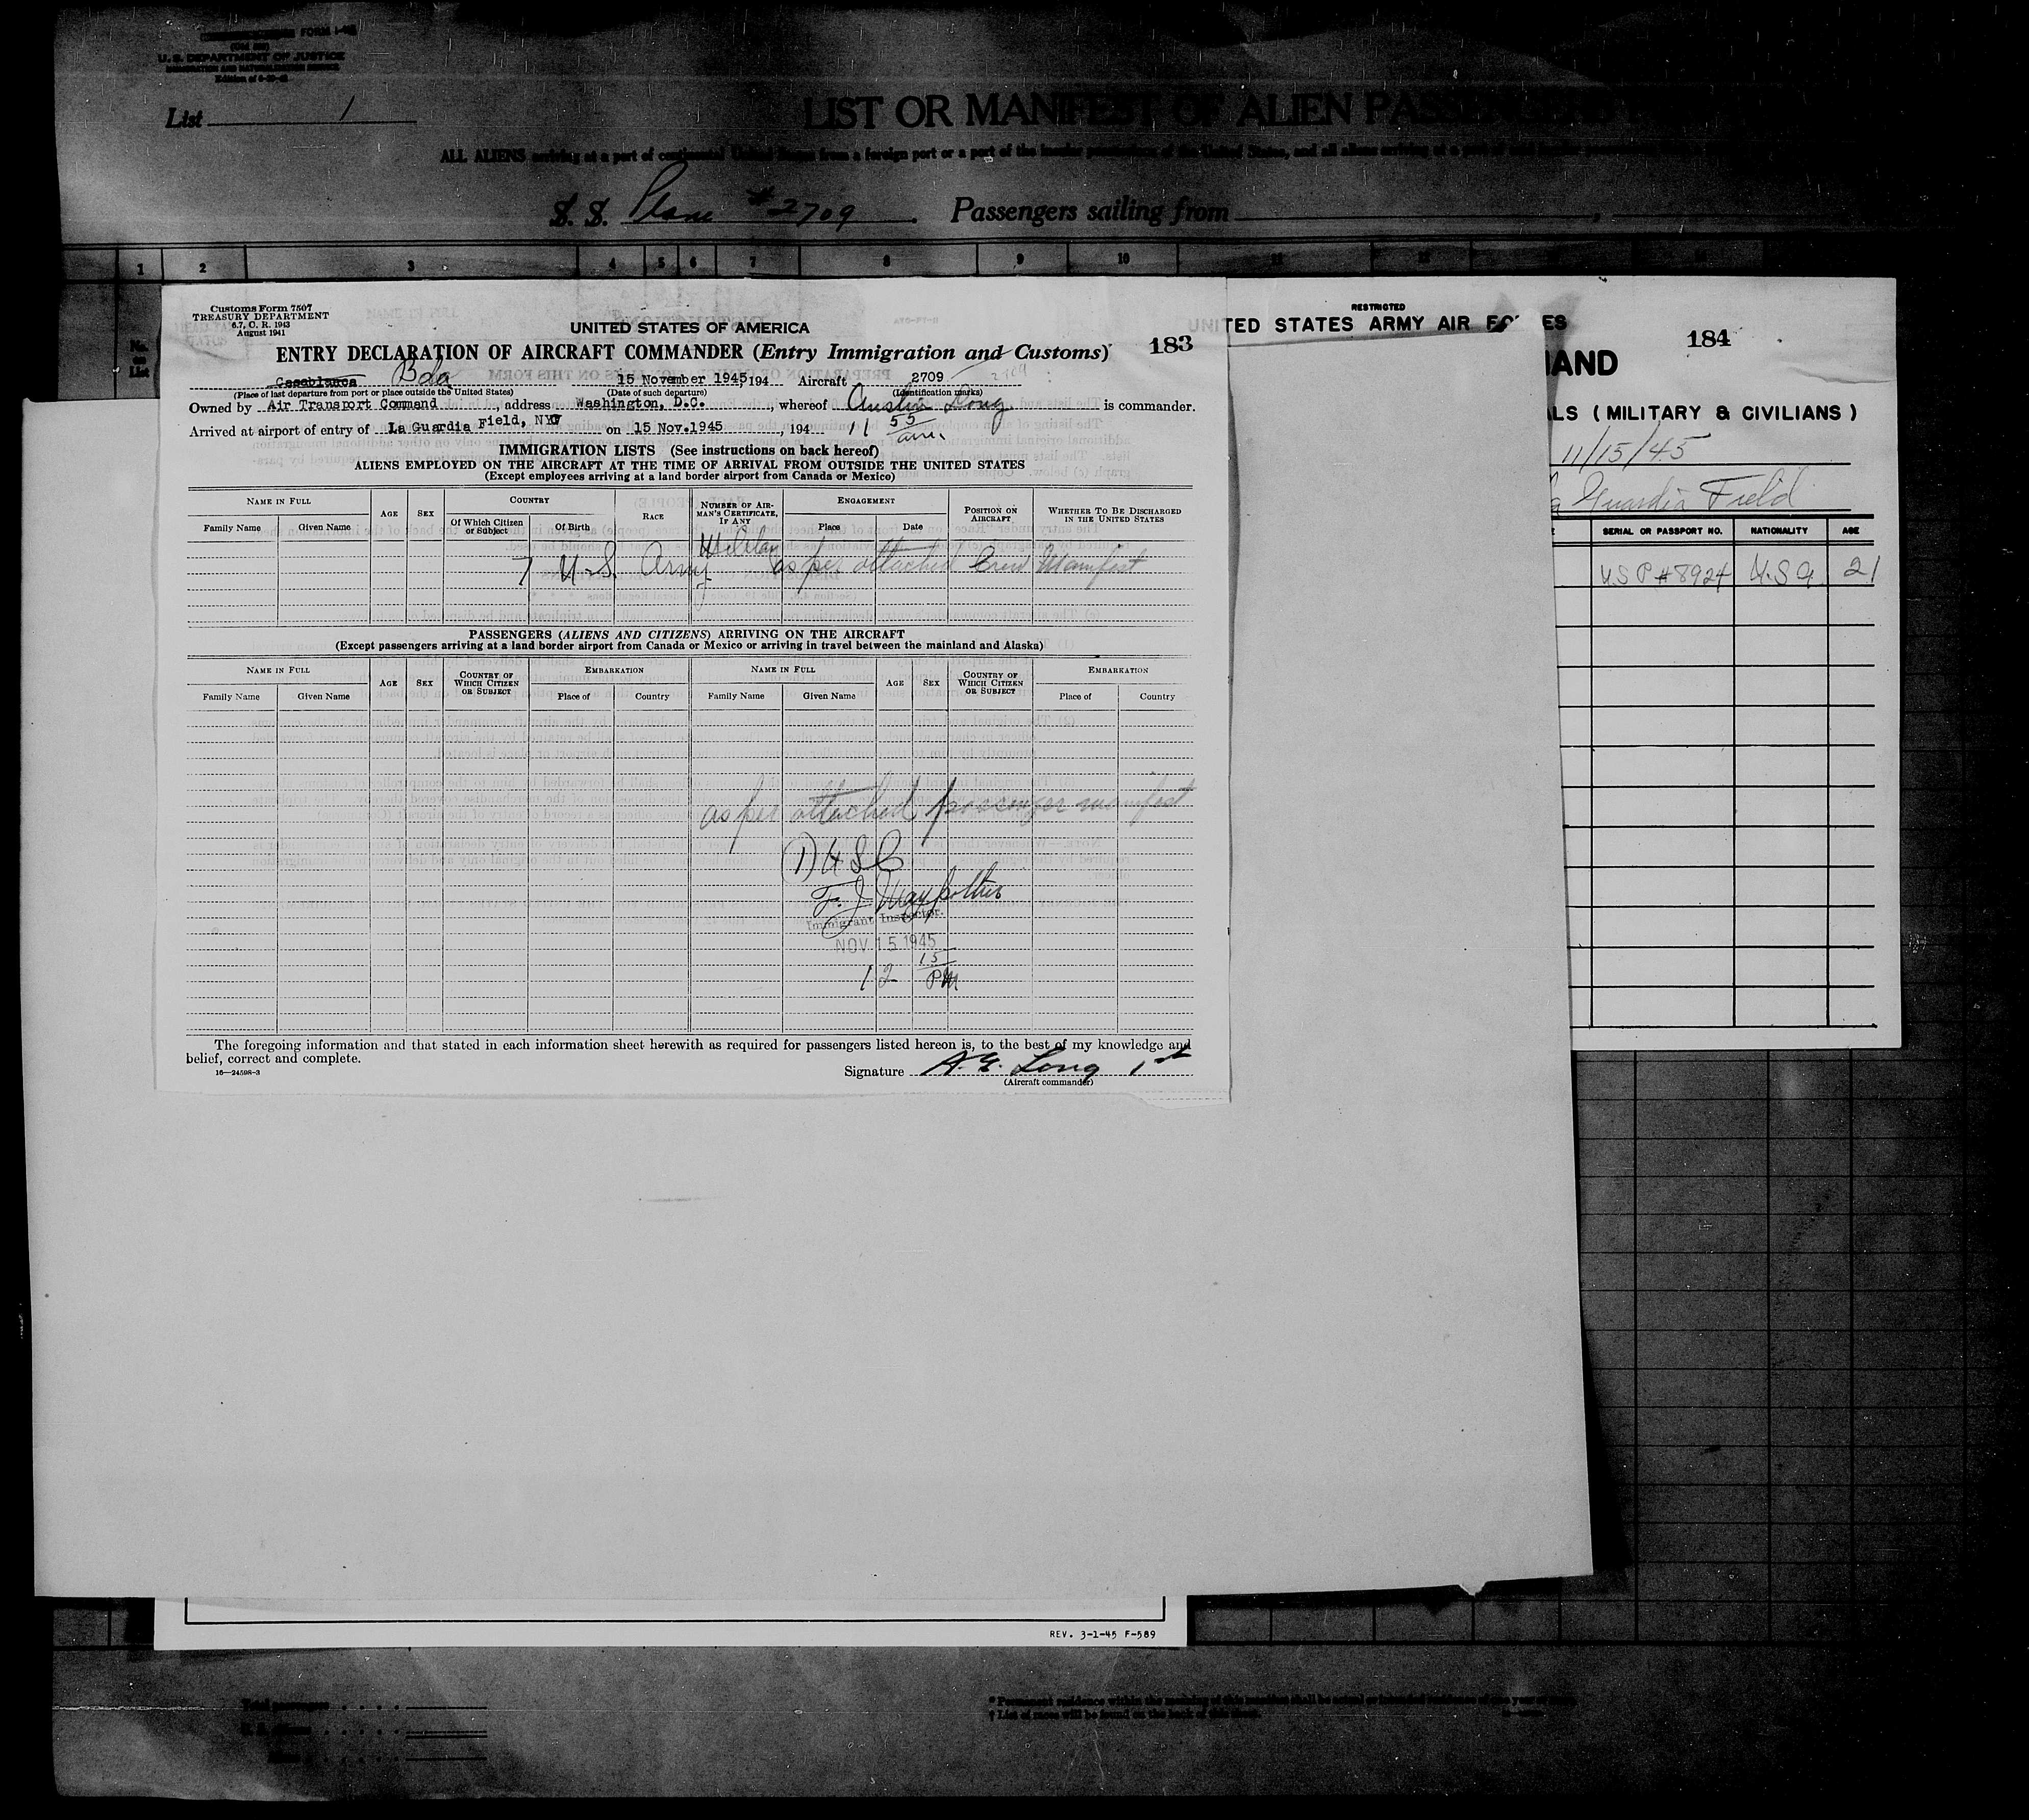 U. S. DEPARTMENT OF JUSTICE
IMMIGRATION AND NATURALIZATION SERVICE
List 1
LIST OR MANIFEST OF ALIEN PASSENGERS
ALL ALIENS arriving at a port of continental United States from a foreign port or a port of the insular possessions of the United States, and all aliens arriving at a port of said insular possessions
S. S. Plane #2709. Passengers sailing from
1 2 3 4 5 6 7 8 9 10 11
No. on List
Customs Form 7507
TREASURY DEPARTMENT
6.7, C. R. 1943
August 1941
UNITED STATES OF AMERICA
183
ENTRY DECLARATION OF AIRCRAFT COMMANDER (Entry Immigration and Customs)
Casablanca Bda 15 November 1945, 194 Aircraft 2709 2709
(Place of last departure from port or place outside the United States) (Date of such departure) (Identification marks)
Owned by Air Transport Command, address Washington, D.C., whereof Austin Long is commander.
Arrived at airport of entry of La Guardia Field, NY on 15 Nov.1945, 194 11 55 am.
IMMIGRATION LISTS (See instructions on back hereof)
ALIENS EMPLOYED ON THE AIRCRAFT AT THE TIME OF ARRIVAL FROM OUTSIDE THE UNITED STATES
(Except employees arriving at a land border airport from Canada or Mexico)
NAME IN FULL AGE SEX COUNTRY RACE NUMBER OF AIRMAN'S CERTIFICATE, IF ANY ENGAGEMENT POSITION ON AIRCRAFT WHETHER TO BE DISCHARGED IN THE UNITED STATES
Family Name Given Name Of Which Citizen or Subject Of Birth Place Date
7 U.S. Army as per attached Crew Manifest
PASSENGERS (ALIENS AND CITIZENS) ARRIVING ON THE AIRCRAFT
(Except passengers arriving at a land border airport from Canada or Mexico or arriving in travel between the mainland and Alaska)
NAME IN FULL AGE SEX COUNTRY OF WHICH CITIZEN OR SUBJECT EMBARKATION NAME IN FULL AGE SEX COUNTRY OF WHICH CITIZEN OR SUBJECT EMBARKATION
Family Name Given Name Place of Country Family Name Given Name Place of Country
as per attached passenger manifest
(1) USC
F. J.
Immigrant Inspector.
NOV 15 1945
12 15 PM
The foregoing information and that stated in each information sheet herewith as required for passengers listed hereon is, to the best of my knowledge and
belief, correct and complete.
16—24598-3
Signature A. E. Long 1st
(Aircraft commander)
RESTRICTED
UNITED STATES ARMY AIR FORCES
184
MAND
ALS (MILITARY & CIVILIANS)
11/15/45
Guardia Field
SERIAL OR PASSPORT NO. NATIONALITY AGE
USP #8924 U.S.A. 21
REV. 3-1-45 F-589
Total passengers
* Permanent residence within the meaning of this manifest shall be actual or intended residence of one year or more.
† List of races will be found on the back of this sheet.